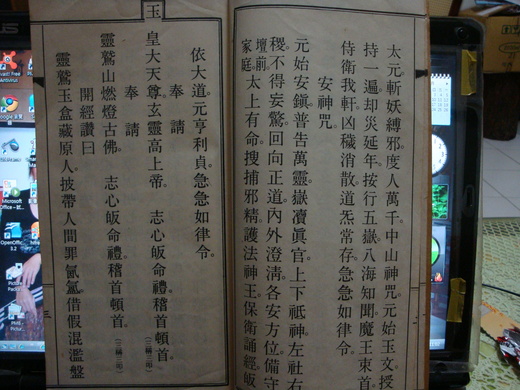 太元。斬妖縛邪。度人萬千。中山神咒。元始玉文。授
持一遍。却災延年。按行五嶽。八海知聞。魔王束首。
侍衛我軒。凶穢消散。道炁常存。急急如律令。
安神咒。
元始安鎮。普告萬靈。嶽凟眞官。上下祗神。左社右
稷。不得妄驚。回向正道。內外澄清。各安方位。備守
壇前家庭。太上有命。搜捕邪精。護法神王。保衛誦經。皈
依大道。元亨利貞。急急如律令。
奉請
皇大天尊玄靈高上帝。 志心皈命禮。稽首頓首。(三稱三叩)
奉請
靈鷲山燃燈古佛。 志心皈命禮。稽首頓首。(三稱三叩)
開經讚曰
靈鷲玉盒藏原人。披帶人間罪氤氳。借假混濫盤
玉
三
Microsoft
OpenOffice
3.2